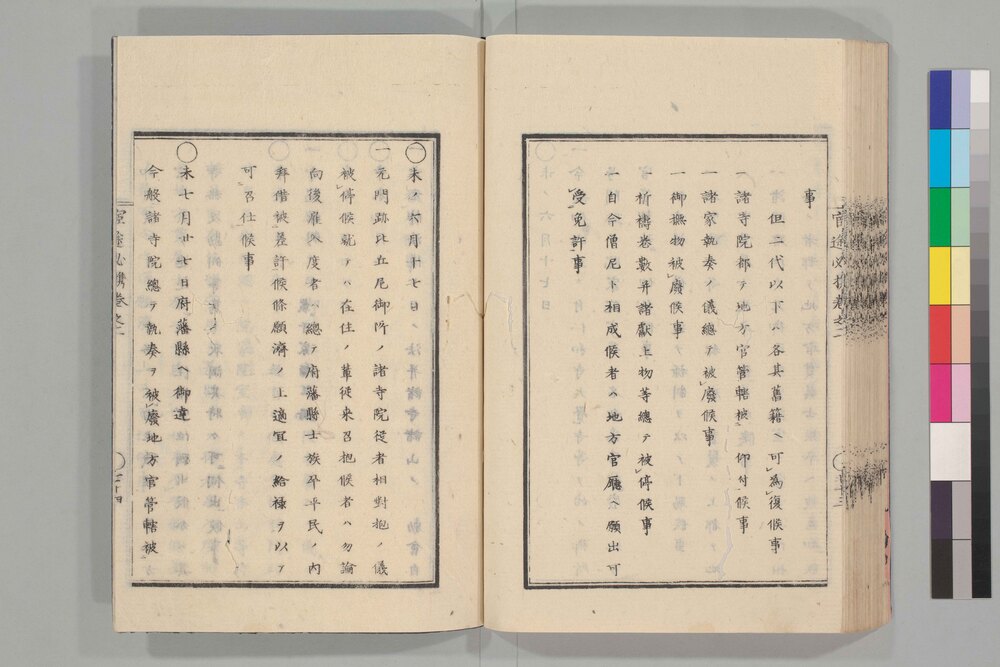 事
但二代以下ハ各其舊籍ヘ可為復候事
一諸寺院都テ地方官管轄被仰付候事
一諸家執奏ノ儀總テ被廢候事
一御撫物被廢候事
一祈禱卷數并諸獻上物等總テ被停候事
一自今僧尼ト相成候者ハ地方官廳ヘ願出可
受免許事
○未ノ六月十七日
一元門跡比丘尼御所ノ諸寺院從者相對抱ノ儀
被停候就テハ在住ノ輩從来召抱候者ハ勿論
向後雇入度者ハ總テ府藩縣士族卒平民ノ内
拜借被差許候條願濟ノ上適宜ノ給祿ヲ以テ
可召仕候事
○未七月廿七日府藩縣ヘ御達
今般諸寺院總テ執奏ヲ被廢地方官管轄被